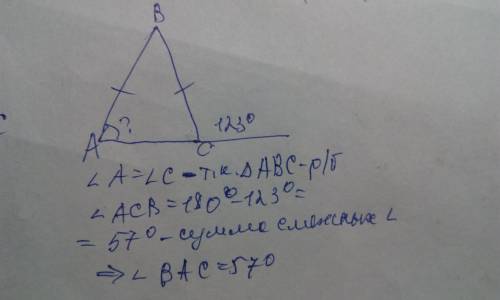 B
A ? C 123°
∠A=∠C – т.к. ΔABC – р/б
∠ACB=180°–123°=
= 57° – сумма смежных ∠
⇒ ∠BAC=57°